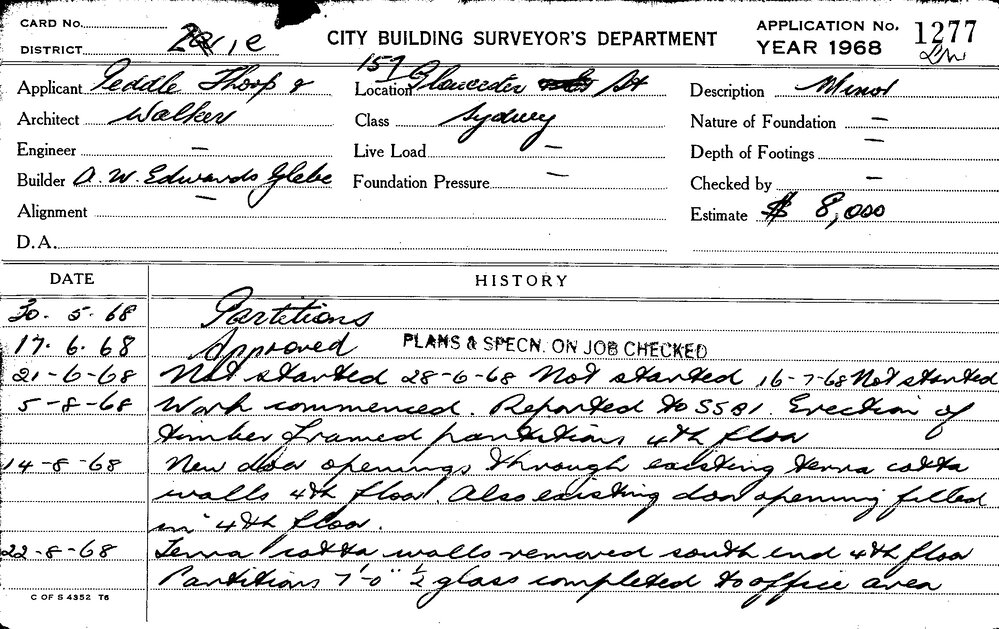 CARD No.
DISTRICT
CITY BUILDING SURVEYOR'S DEPARTMENT
APPLICATION No. 1277
YEAR 1968
Applicant Peddle Thorp &
Architect Walker
Engineer —
Builder A. W. Edwards Glebe
Alignment —
D.A.
Location 157 Gloucester St
Class Sydney
Live Load —
Foundation Pressure —
Description Minor
Nature of Foundation —
Depth of Footings —
Checked by —
Estimate $ 8,000
DATE HISTORY
30. 5. 68 Partitions
17. 6. 68 Approved PLANS & SPECN. ON JOB CHECKED
21-6-68 Not started 28-6-68 Not started 16-7-68 Not started
5-8-68 Work commenced. Reported to SSBI. Erection of
timber framed partitions 4th floor
14-8-68 New door openings through existing terra cotta
walls 4th floor. Also existing door opening filled
in 4th floor.
22-8-68 Terra cotta walls removed south end 4th floor
Partitions 7'-0" ½ glass completed to office area
C OF S 4352 T6